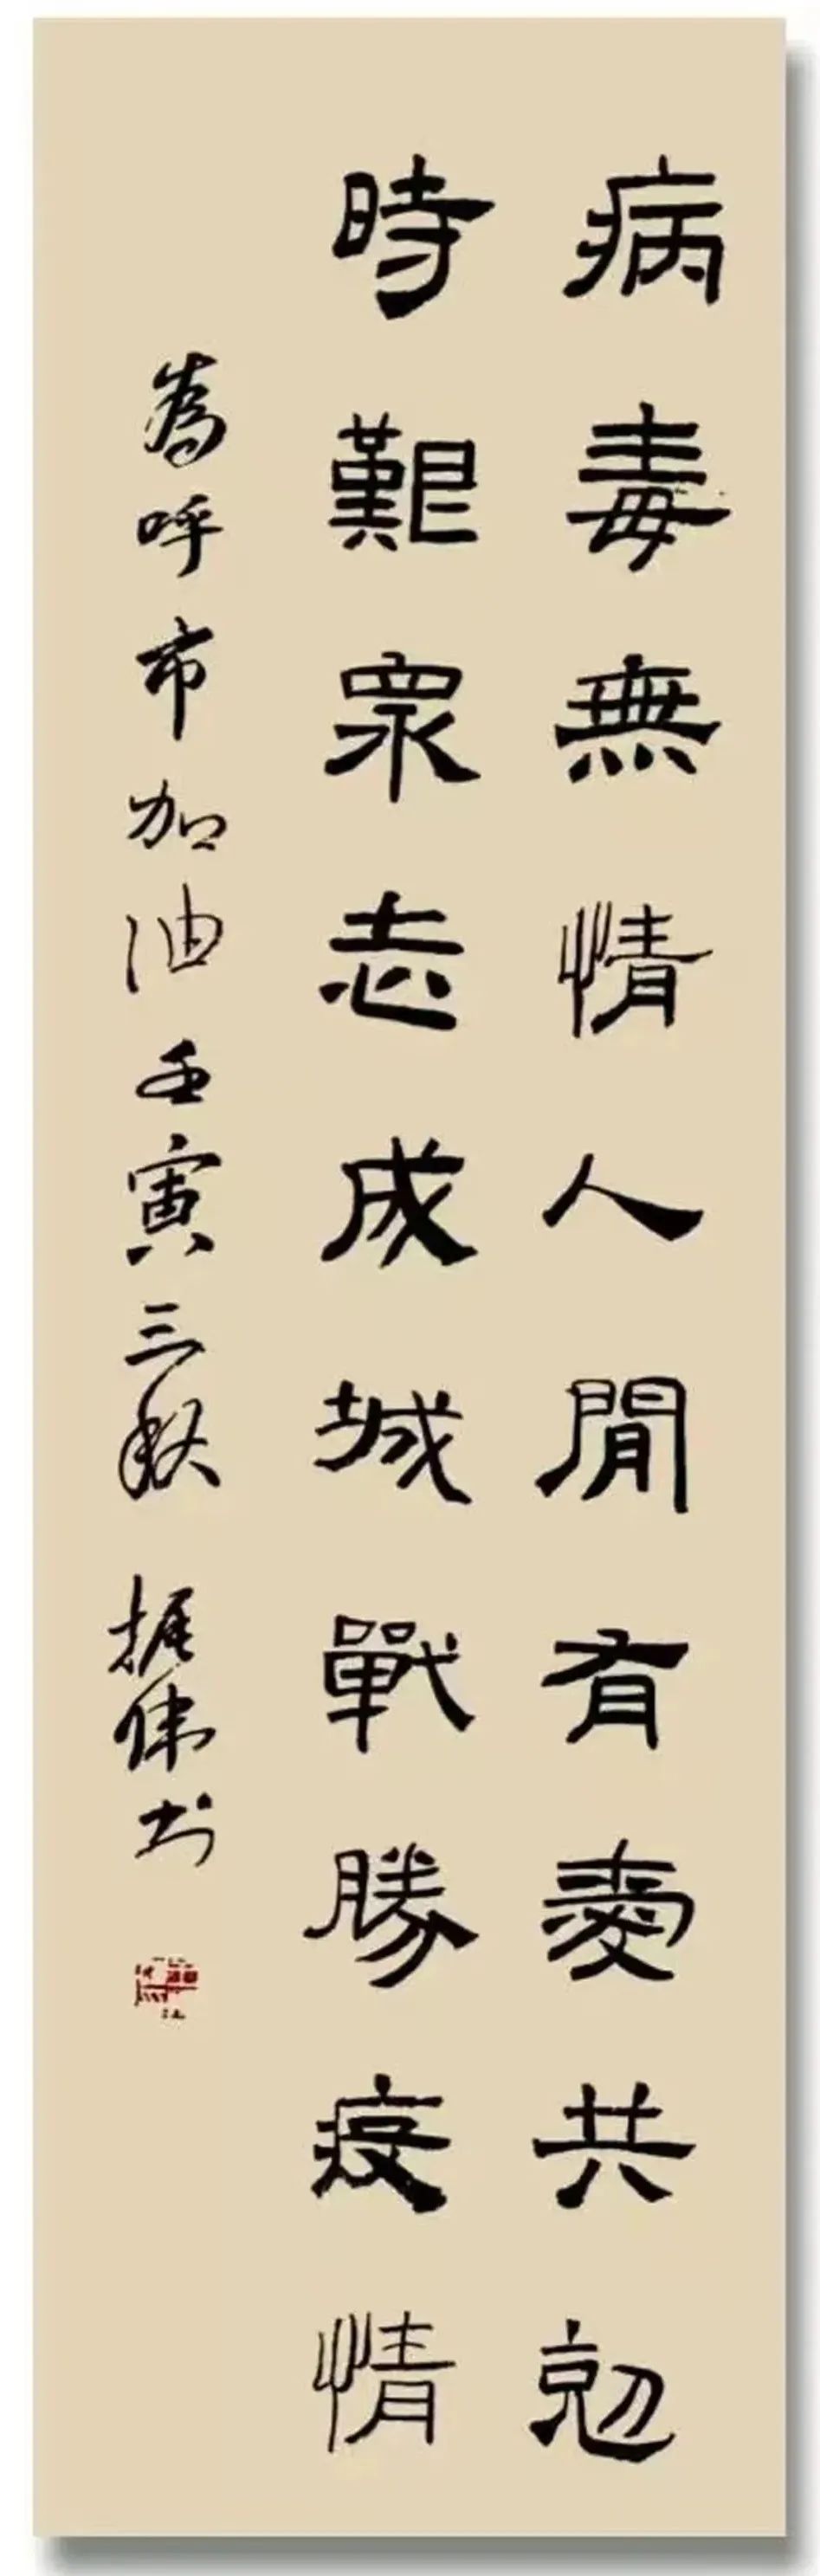 病毒無情人間有愛共克
時艱眾志成城戰勝疫情
為呼市加油壬寅三秋
振偉书